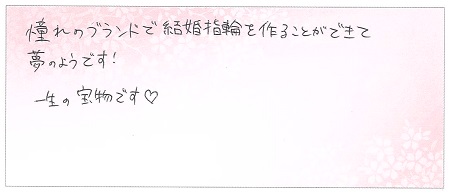 憧れのブランドで結婚指輪を作ることができて
夢のようです!
一生の宝物です♡